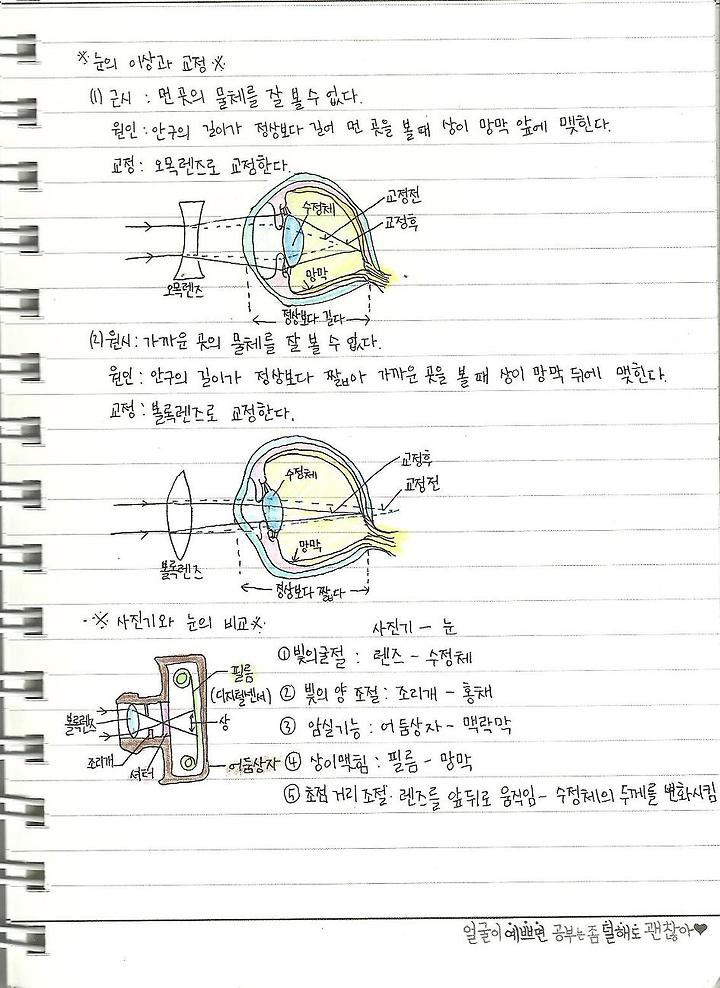 ※눈의 이상과 교정※
(1) 근시 : 먼 곳의 물체를 잘 볼 수 없다.
원인 : 안구의 길이가 정상보다 길어 먼 곳을 볼 때 상이 망막 앞에 맺힌다.
교정 : 오목렌즈로 교정한다.
수정체
교정전
교정후
망막
오목렌즈
정상보다 길다
(2) 원시 : 가까운 곳의 물체를 잘 볼 수 없다.
원인 : 안구의 길이가 정상보다 짧아 가까운 곳을 볼 때 상이 망막 뒤에 맺힌다.
교정 : 볼록렌즈로 교정한다.
수정체
교정후
교정전
망막
볼록렌즈
정상보다 짧다
※사진기와 눈의 비교※
사진기 - 눈
① 빛의굴절 : 렌즈 - 수정체
필름
(디지털센서)
② 빛의 양 조절 : 조리개 - 홍채
볼록렌즈
상
③ 암실기능 : 어둠상자 - 맥락막
조리개
셔터
어둠상자
④ 상이맺힘 : 필름 - 망막
⑤ 초점 거리 조절· 렌즈를 앞뒤로 움직임 - 수정체의 두께를 변화시킴
얼굴이 예쁘면 공부는 좀 덜해도 괜찮아♥